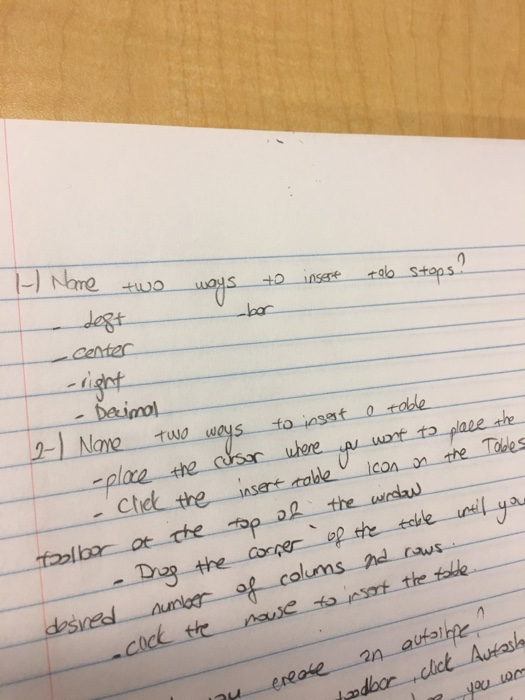 1-) Name two ways to insert tab stops?
- left -bar
- center
- right
- Decimal
2-) Name two ways to insert a table
- place the cursor where you want to place the
- Click the insert table icon on the Tables
toolbar at the top of the window
- Drag the corner of the table until you
desired number of colums and rows.
- click the mouse to insert the table.
you create an autoshpe?
toolbar, click Autosha
you wan